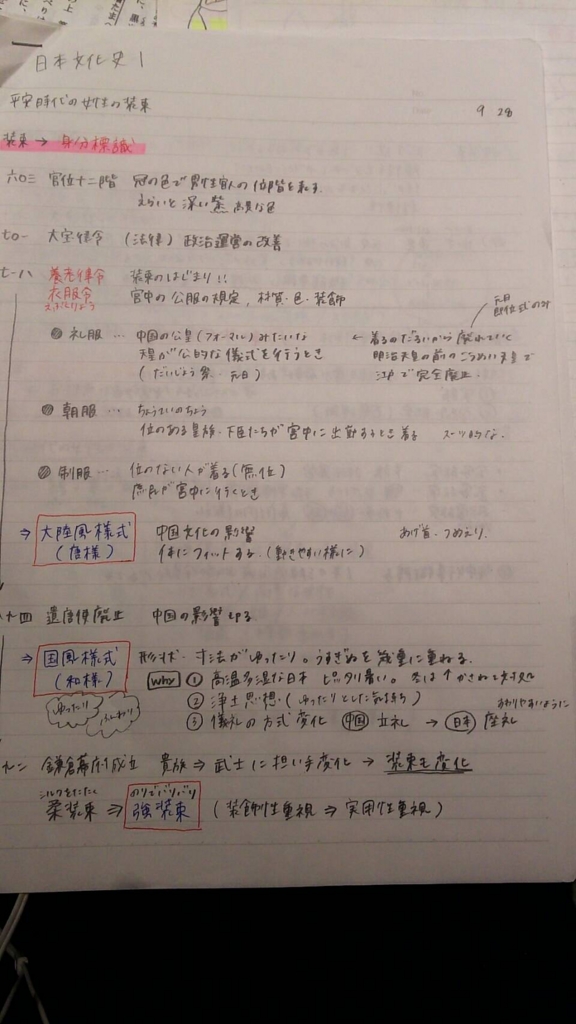 日本文化史1
平安時代の女性の装束
9 28
装束 → 身分標識
六〇三 官位十二階 冠の色で男性官人の位階を表す
えらいと深い紫 高貴な色
七〇一 大宝律令 (法律) 政治運営の改善
七一八 養老律令 装束のはじまり!!
衣服令 宮中の公服の規定, 材質・色・装飾
えぶくりょう
元日
即位式のみ
礼服 … 中国の公皇(フォーマル)みたいな ← 着るのだるいから廃れていく
天皇が公的な儀式を行うとき 明治天皇の前のこうめい天皇で
(だいじょう祭・元日) 江戸で完全廃止.
朝服 … ちょうていのちょう
位のある皇族・下臣たちが宮中に出勤するとき着る スーツ的な.
制服 … 位のない人が着る(無位)
庶民が宮中に行くとき
⇒ 大陸風様式 中国文化の影響 あげ首・つめえり.
(唐様) 体にフィットする.(動きやすい様に)
八十四 遣唐使廃止 中国の影響
⇒ 国風様式 形状・寸法がゆったり。うすぎぬを幾重に重ねる.
(和様) why ① 高温多湿な日本 ピッタリ暑い。冬は↑かさねて対処
ゆったり ふんわり
② 浄土思想・(ゆったりとした気持ち)
③ 儀礼の方式変化 中国 立礼 → 日本 座礼
鎌倉幕府成立 貴族 ⇒ 武士に担い手変化 → 装束も変化
シルクをたたく のりでバリバリ
柔装束 ⇒ 強装束 (装飾性重視 ⇒ 実用性重視)